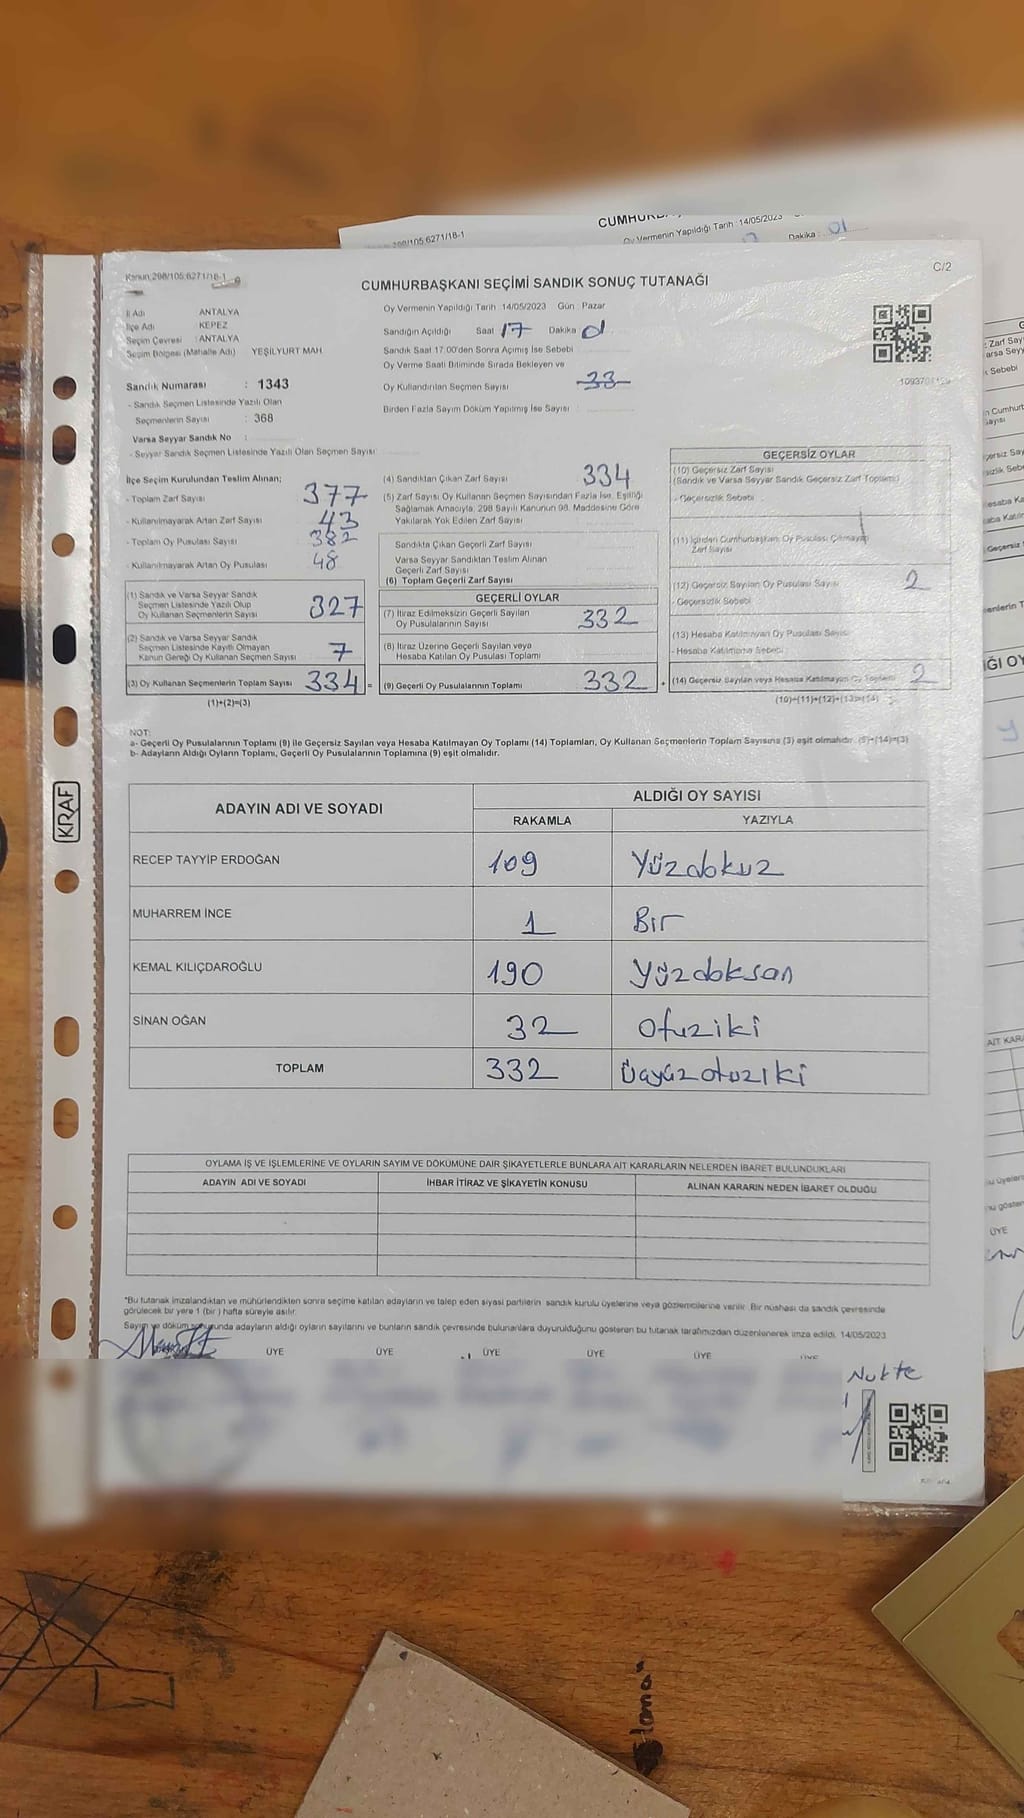 298/105;6271/18-1
Oy Vermenin Yapıldığı Tarih :14/05/2023
Dakika : 01
Kanun:298/105;6271/18-1
C/2
CUMHURBAŞKANI SEÇİMİ SANDIK SONUÇ TUTANAĞI
İl Adı ANTALYA
İlçe Adı KEPEZ
Seçim Çevresi : ANTALYA
Seçim Bölgesi (Mahalle Adı) YEŞİLYURT MAH.
Oy Vermenin Yapıldığı Tarih :14/05/2023 Gün : Pazar
Sandığın Açıldığı Saat 17 Dakika
Sandık Saat 17:00'den Sonra Açımış İse Sebebi
Oy Verme Saati Bitiminde Sırada Bekleyen ve
Oy Kullandırılan Seçmen Sayısı 33
Birden Fazla Sayım Döküm Yapılmış İse Sayısı :
Sandık Numarası : 1343
- Sandık Seçmen Listesinde Yazılı Olan
Seçmenlerin Sayısı : 368
Varsa Seyyar Sandık No :
- Seyyar Sandık Seçmen Listesinde Yazılı Olan Seçmen Sayısı:
İlçe Seçim Kurulundan Teslim Alınan;
- Toplam Zarf Sayısı 377
- Kullanılmayarak Artan Zarf Sayısı 43
- Toplam Oy Pusulası Sayısı 382
- Kullanılmayarak Artan Oy Pusulası 48
(1) Sandık ve Varsa Seyyar Sandık
Seçmen Listesinde Yazılı Olup
Oy Kullanan Seçmenlerin Sayısı 327
(2) Sandık ve Varsa Seyyar Sandık
Seçmen Listesinde Kayıtlı Olmayan
Kanun Gereği Oy Kullanan Seçmen Sayısı 7
(3) Oy Kullanan Seçmenlerin Toplam Sayısı 334 =
(1)+(2)=(3)
(4) Sandıktan Çıkan Zarf Sayısı 334
(5) Zarf Sayısı Oy Kullanan Seçmen Sayısından Fazla İse, Eşitliği
Sağlamak Amacıyla, 298 Sayılı Kanunun 98. Maddesine Göre
Yakılarak Yok Edilen Zarf Sayısı
Sandıkta Çıkan Geçerli Zarf Sayısı
Varsa Seyyar Sandıktan Teslim Alınan
Geçerli Zarf Sayısı
(6) Toplam Geçerli Zarf Sayısı
GEÇERLİ OYLAR
(7) İtiraz Edilmeksizin Geçerli Sayılan
Oy Pusulalarının Sayısı 332
(8) İtiraz Üzerine Geçerli Sayılan veya
Hesaba Katılan Oy Pusulası Toplamı
(9) Geçerli Oy Pusulalarının Toplamı 332 +
GEÇERSİZ OYLAR
(10) Geçersiz Zarf Sayısı
(Sandık ve Varsa Seyyar Sandık Geçersiz Zarf Toplamı)
- Geçersizlik Sebebi
(11) İçinden Cumhurbaşkanı Oy Pusulası Çıkmayan
Zarf Sayısı
(12) Geçersiz Sayılan Oy Pusulası Sayısı 2
- Geçersizlik Sebebi
(13) Hesaba Katılmayan Oy Pusulası Sayısı
- Hesaba Katılmama Sebebi
(14) Geçersiz Sayılan veya Hesaba Katılmayan Oy Toplamı 2
(10)+(11)+(12)+(13)=(14)
NOT:
a- Geçerli Oy Pusulalarının Toplamı (9) ile Geçersiz Sayılan veya Hesaba Katılmayan Oy Toplamı (14) Toplamları, Oy Kullanan Seçmenlerin Toplam Sayısına (3) eşit olmalıdır. (9)+(14)=(3)
b- Adayların Aldığı Oyların Toplamı, Geçerli Oy Pusulalarının Toplamına (9) eşit olmalıdır.
KRAF
ADAYIN ADI VE SOYADI
ALDIĞI OY SAYISI
RAKAMLA YAZIYLA
RECEP TAYYİP ERDOĞAN 109 Yüzdokuz
MUHARREM İNCE 1 Bir
KEMAL KILIÇDAROĞLU 190 Yüzdoksan
SİNAN OĞAN 32 Otuziki
TOPLAM 332 Üçyüzotuziki
OYLAMA İŞ VE İŞLEMLERİNE VE OYLARIN SAYIM VE DÖKÜMÜNE DAİR ŞİKAYETLERLE BUNLARA AİT KARARLARIN NELERDEN İBARET BULUNDUKLARI
ADAYIN ADI VE SOYADI İHBAR İTİRAZ VE ŞİKAYETİN KONUSU ALINAN KARARIN NEDEN İBARET OLDUĞU
*Bu tutanak imzalandıktan ve mühürlendikten sonra seçime katılan adayların ve talep eden siyasi partilerin sandık kurulu üyelerine veya gözlemcilerine verilir. Bir nüshası da sandık çevresinde
görülecek bir yere 1 (bir) hafta süreyle asılır.
Sayım ve döküm sonucunda adayların aldığı oyların sayılarını ve bunların sandık çevresinde bulunanlara duyurulduğunu gösteren bu tutanak tarafımızdan düzenlenerek imza edildi. 14/05/2023
ÜYE ÜYE ÜYE ÜYE ÜYE
Nukte
ÜYE